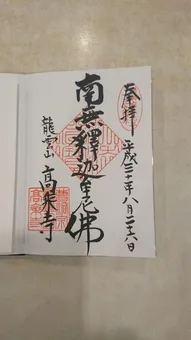 奉拝
平成三十年八月二十六日
南無釋迦牟尼佛
龍雲山
髙乗寺